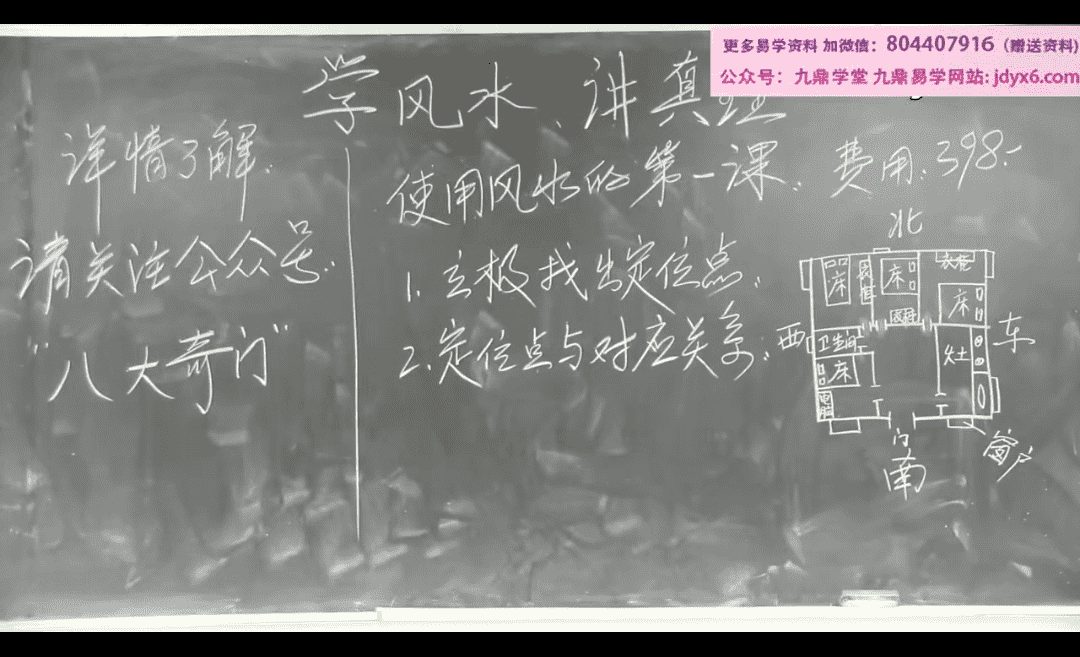 更多易学资料 加微信：804407916（赠送资料）
公众号：九鼎学堂 九鼎易学网站: jdyx6.com
学风水、讲真
详情了解：
请关注公众号：
“八大奇门”
使用风水的第一课：费用：398.-
1. 立极找出定位点；
2.定位点与对应关系；
北
床 床 衣柜
床
西 卫生间 灶 东
床
电脑
门 窗户
南